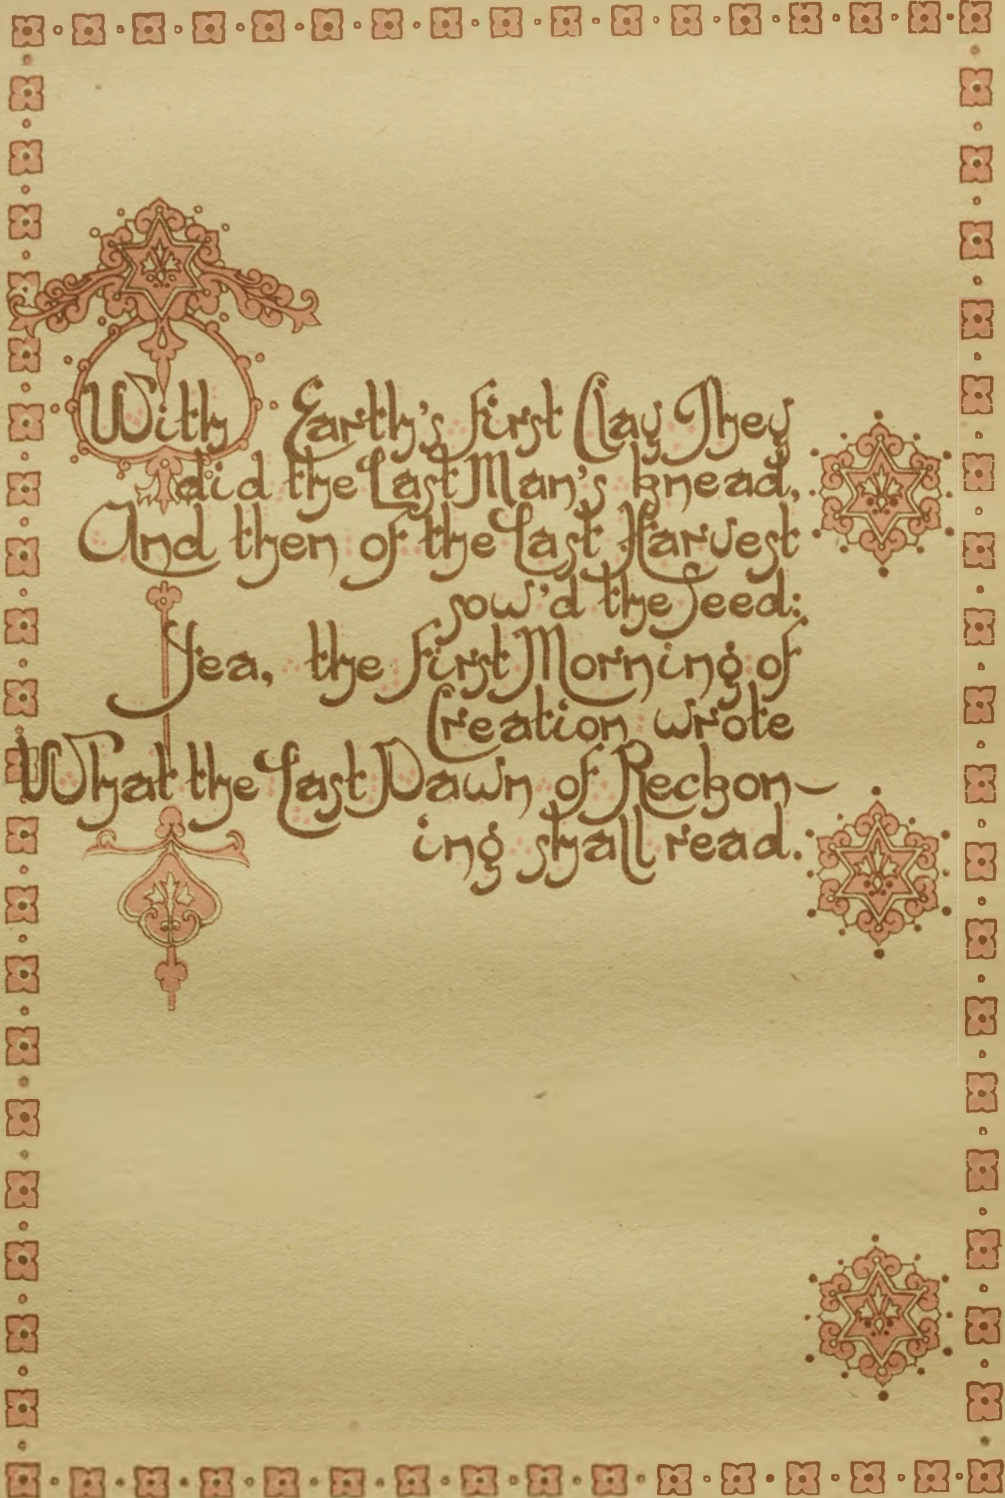 With Earth's first Clay They
did the Last Man's knead,
And then of the Last Harvest
sow'd the Seed:
Yea, the first Morning of
Creation wrote
What the Last Dawn of Reckon-
ing shall read.